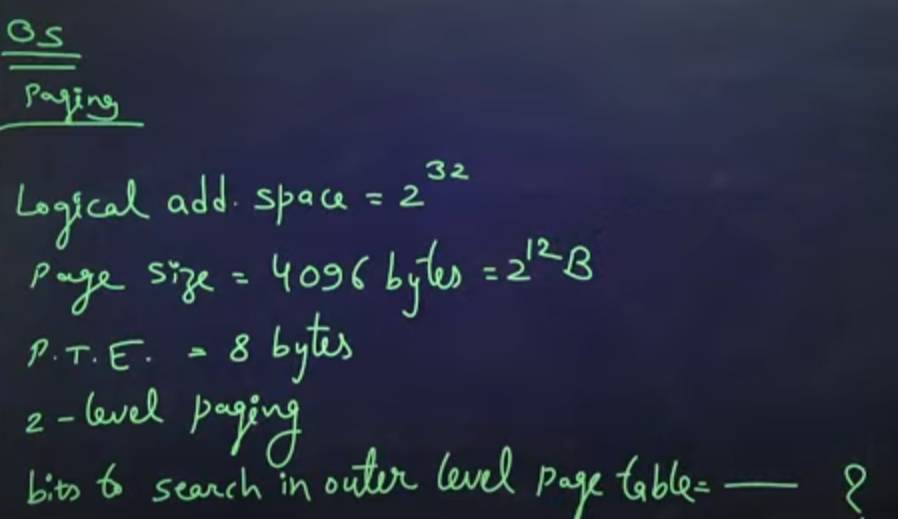 OS
Paging
Logical add. space = 2^32
Page size = 4096 bytes = 2^12 B
P.T.E. = 8 bytes
2-level paging
bits to search in outer level page table = — ?